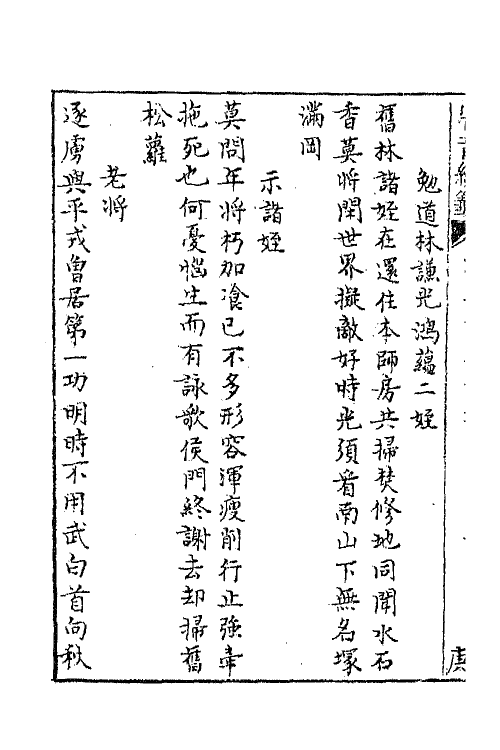 勉道林謙光鴻蘊二姪
舊林諸姪在還住本師房共掃焚修地同聞水石
香莫將閑世界擬敵好時光須看南山下無名塚
滿岡
示諸姪
莫問年將朽加飡已不多形容渾瘦削行止強牽
拖死也何憂惱生而有詠歌侯門終謝去却掃舊
松蘿
老將
逐虜與平戎曾居第一功明時不用武白首向秋